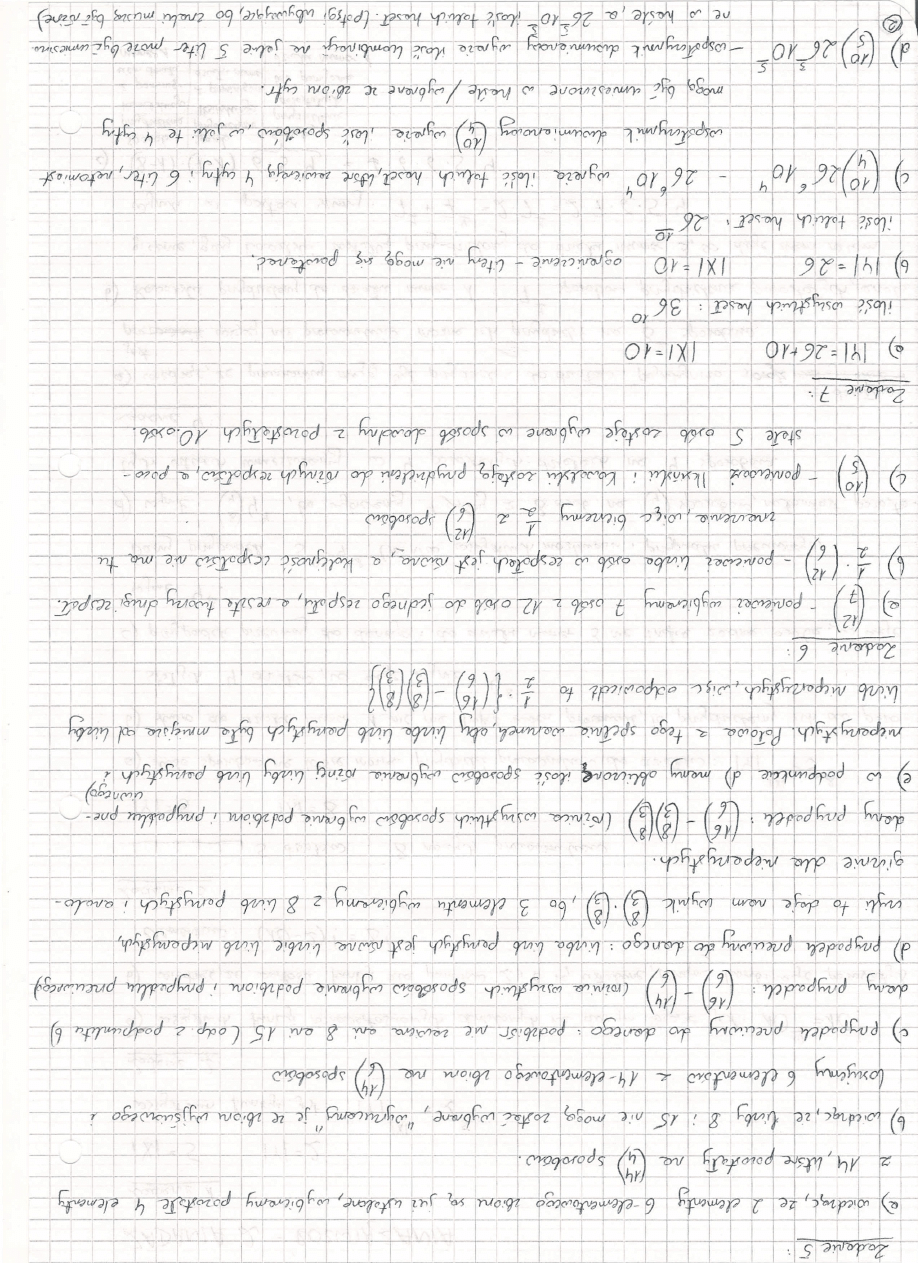 Zadanie 5:
a) wiedząc, że 2 elementy 6-elementowego zbioru są już ustalone, wybieramy pozostałe 4 elementy
z 14, które pozostały na (14 4) sposobów.
b) wiedząc, że liczby 8 i 15 nie mogą zostać wybrane, "wyrzucamy" je ze zbioru wyjściowego i
losujemy 6 elementów z 14-elementowego zbioru na (14 6) sposobów
c) przypadek przeciwny do danego: podzbiór nie zawiera ani 8 ani 15 (odp. z podpunktu b)
dany przypadek: (16 6) - (14 6) (różnica wszystkich sposobów wybrania podzbioru i przypadku przeciwnego)
d) przypadek przeciwny do danego: liczba liczb parzystych jest równa liczbie liczb nieparzystych,
czyli to daje nam wynik (8 3)·(8 3), bo 3 elementy wybieramy z 8 liczb parzystych i analo-
gicznie dla nieparzystych.
dany przypadek: (16 6) - (8 3)(8 3) (różnica wszystkich sposobów wybrania podzbioru i przypadku prze-
ciwnego)
e) w podpunkcie d) mamy obliczone ilość sposobów wybrania różnej liczby liczb parzystych i
nieparzystych. Połowa z tego spełnia warunek, aby liczba liczb parzystych była mniejsza od liczby
liczb nieparzystych, więc odpowiedź to 1/2 · {(16 6) - (8 3)(8 3)}
Zadanie 6:
a) (12 7) - ponieważ wybieramy 7 osób z 12 osób do jednego zespołu, a reszta tworzy drugi zespół.
b) 1/2 · (12 6) - ponieważ liczba osób w zespołach jest równa, a kolejność zespołów nie ma tu
znaczenia, więc bierzemy 1/2 z (12 6) sposobów
c) (10 5) - ponieważ Iksiński i Kowalski zostają przydzieleni do różnych zespołów, a pozo-
stałe 5 osób zostaje wybrane w sposób dowolny z pozostałych 10 osób.
Zadanie 7:
a) |Y| = 26+10 |X| = 10
ilość wszystkich haseł: 36^10
b) |Y| = 26 |X| = 10 ograniczenie - litery nie mogą się powtarzać.
ilość takich haseł: 26^10
c) (10 4) 26^6 10^4 - 26^6 10^4 wyraża ilość takich haseł, które zawierają 4 cyfry i 6 liter, natomiast
współczynnik dwumianowy (10 4) wyraża ilość sposobów, w jaki te 4 cyfry
mogą być umieszczone w haśle / wybrane ze zbioru cyfr.
d) (10 5) 26^5 10^5 - współczynnik dwumianowy wyraża ilość kombinacji na jakie 5 liter może być umieszczo-
ne w haśle, a 26^5 10^5 ilość takich haseł. (potęgi ubywające, bo znaki muszą być różne)
2